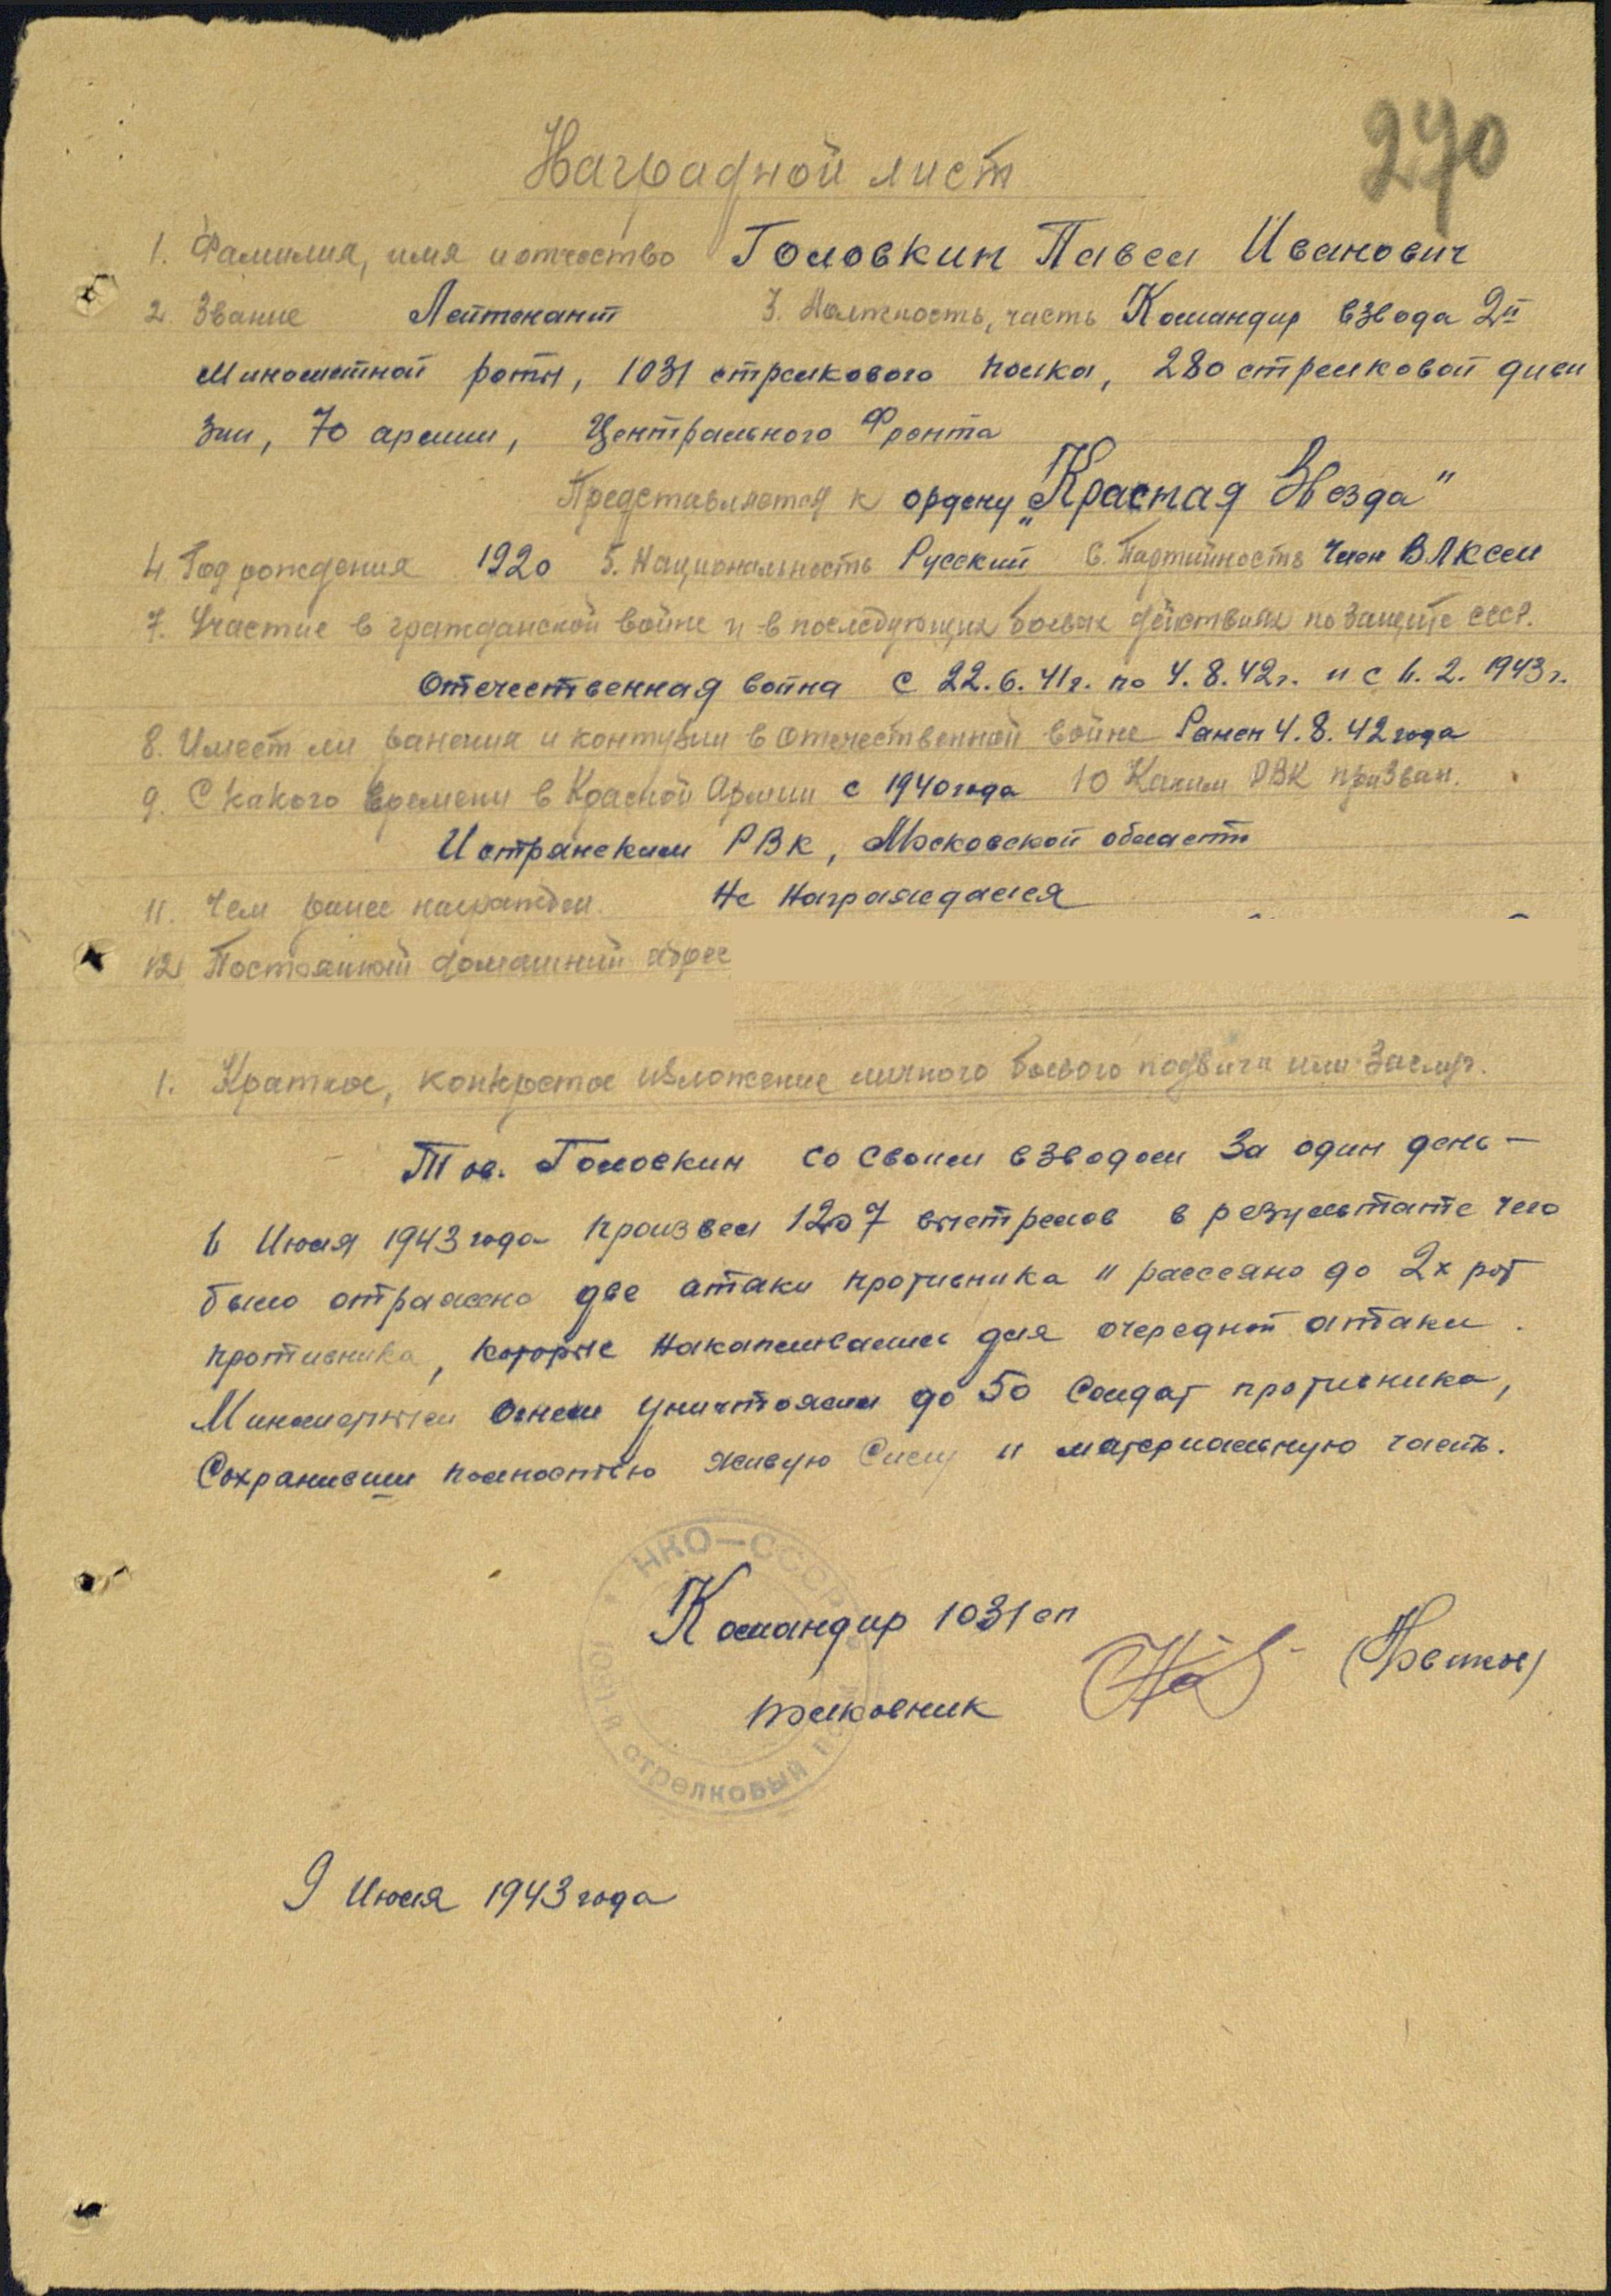 270
Наградной лист
1. Фамилия, имя и отчество Головкин Павел Иванович
2. Звание Лейтенант 3. Должность, часть Командир взвода 2й
Минометной роты, 1031 стрелкового полка, 280 стрелковой диви
зии, 70 армии, Центрального Фронта
Представляется к ордену „Красная Звезда"
4. Год рождения 1920 5. Национальность Русский 6. Партийность Член ВЛКСМ
7. Участие в гражданской войне и в последующих боевых действиях по защите СССР.
Отечественная война с 22.6.41г. по 4.8.42г. и с 6.2.1943г.
8. Имеет ли ранения и контузии в Отечественной войне Ранен 4.8.42 года
9. С какого времени в Красной Армии с 1940 года 10 Каким РВК призван.
Истринским РВК, Московской области
11. Чем ранее награжден. Не Награждался
12 Постоянный домашний адрес
1. Краткое, конкретное изложение личного боевого подвига или заслуг.
Тов. Головкин со своим взводом за один день —
6 Июля 1943 года произвел 1207 выстрелов в результате чего
было отражено две атаки противника и рассеяно до 2х рот
противника, которые накапливались для очередной атаки.
Минометным огнем уничтожил до 50 солдат противника,
Сохранивши полностью живую силу и материальную часть.
НКО—СССР
1031 й стрелковый полк
Командир 1031 сп
полковник
9 Июля 1943 года